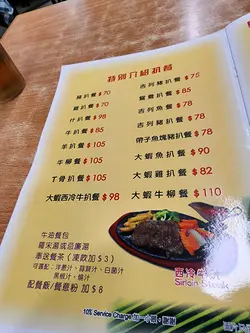 特別介紹扒餐
豬扒餐 $70
雞扒餐 $70
什扒餐 $98
牛扒餐 $85
羊扒餐 $105
牛柳餐 $105
T骨扒餐 $105
大蝦西冷牛扒餐 $98
吉列豬扒餐 $75
鴛鴦扒餐 $85
吉列魚餐 $78
吉列豬扒餐 $78
帶子魚塊豬扒餐 $88
大蝦魚扒餐 $90
大蝦雞扒餐 $82
大蝦牛柳餐 $110
西冷牛扒
Sirloin Steak
牛油餐包
羅宋湯或忌廉湯
奉送餐茶（凍飲加$3）
可選配：洋葱汁、蒜蓉汁、白菌汁
黑椒汁、燒汁
配餐飯/餐意粉 加$8
10% Service Charge 加一小賬，謝謝